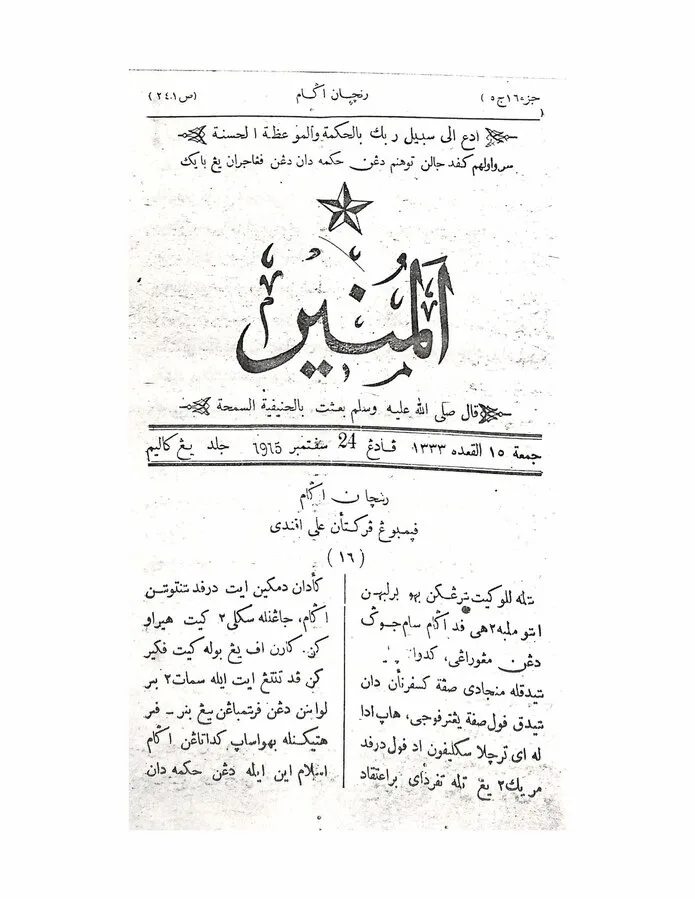 جزء ١٦ ج ٥) رنچان اݢام (ص ٢٤١)
ادع الى سبيل ربك بالحكمة والموعظة الحسنة
سرواولهم كفد جالن توهنم دڠن حكمه دان دڠن فڠاجران يڠ بايك
المنير
قال صلى الله عليه وسلم بعثت بالحنيفية السمحة
جمعة ١٥ القعده ١٣٣٣ ڤادڠ 24 سڤتمبر 1915 جلد يڠ كاليم
رنچان اݢام
ڤيمبوڠ ڤركتأن علي افندى
(١٦)
تله للو كيت ترڠكن بهو برلبهن
ايتو ملبه٢هي قد اݢام سام جوݢ
دڠن مڠوراڠي، كدوا
تيدقله منجادى صفة كسفرنأن دان
تيدق فول صفة يڠترفوجي، هاب ادا
له اى ترچلا سكليفون اد فول درفد
مريك٢ يڠ تله تفردأي براعتقاد
كأدان دمكين ايت درفد تنتوتن
اݢام، جاڠنله سكلي٢ كيت هيراو
كن. كارن اف يڠ بوله كيت فكير
كن قد تنتڠ ايت ايله سمات٢ بر
لوانن دڠن فرتمباڠن يڠ بنر - فر
هتيكنله بهواساڽ كداتاڠن اݢام
اسلام اين ايله دڠن حكمه دان